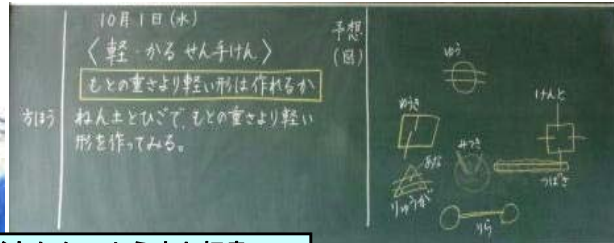 10月1日(水)
〈軽・かる せん手けん〉
もとの重さより軽い形は作れるか
方ほう
ねん土とひごで、もとの重さより軽い
形を作ってみる。
予想
(図)
ゆう
ゆうき
けんと
みつき
あな
つばさ
りゅうが
りら